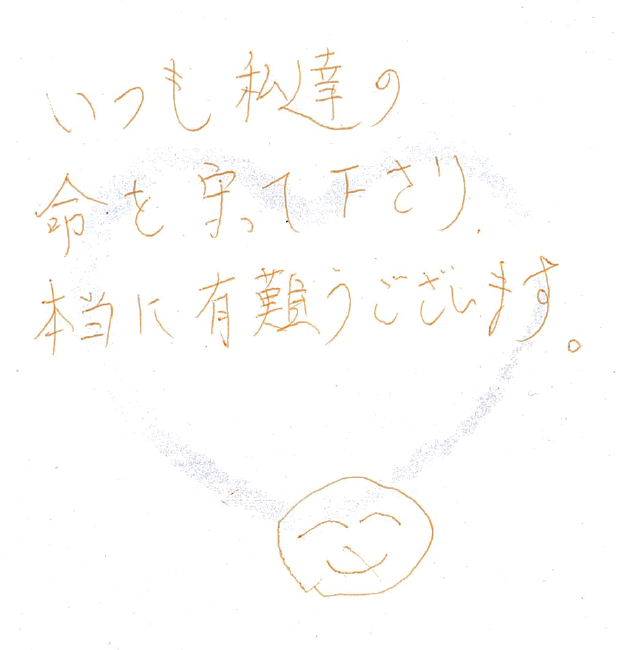 いつも私達の
命を守って下さり、
本当に有難うございます。